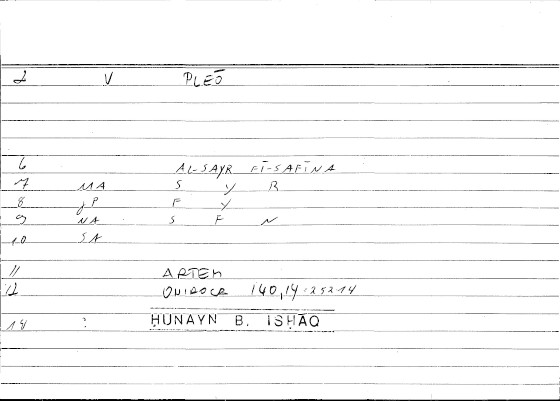 2 V PLEŌ
6 AL-SAYR FĪ-SAFĪNA
7 MA S Y R
8 JP F Y
9 NA S F N
10 SA
11 ARTEM
12 ONIROCR 140,14:25214
14 : ḤUNAYN B. ISḤĀQ